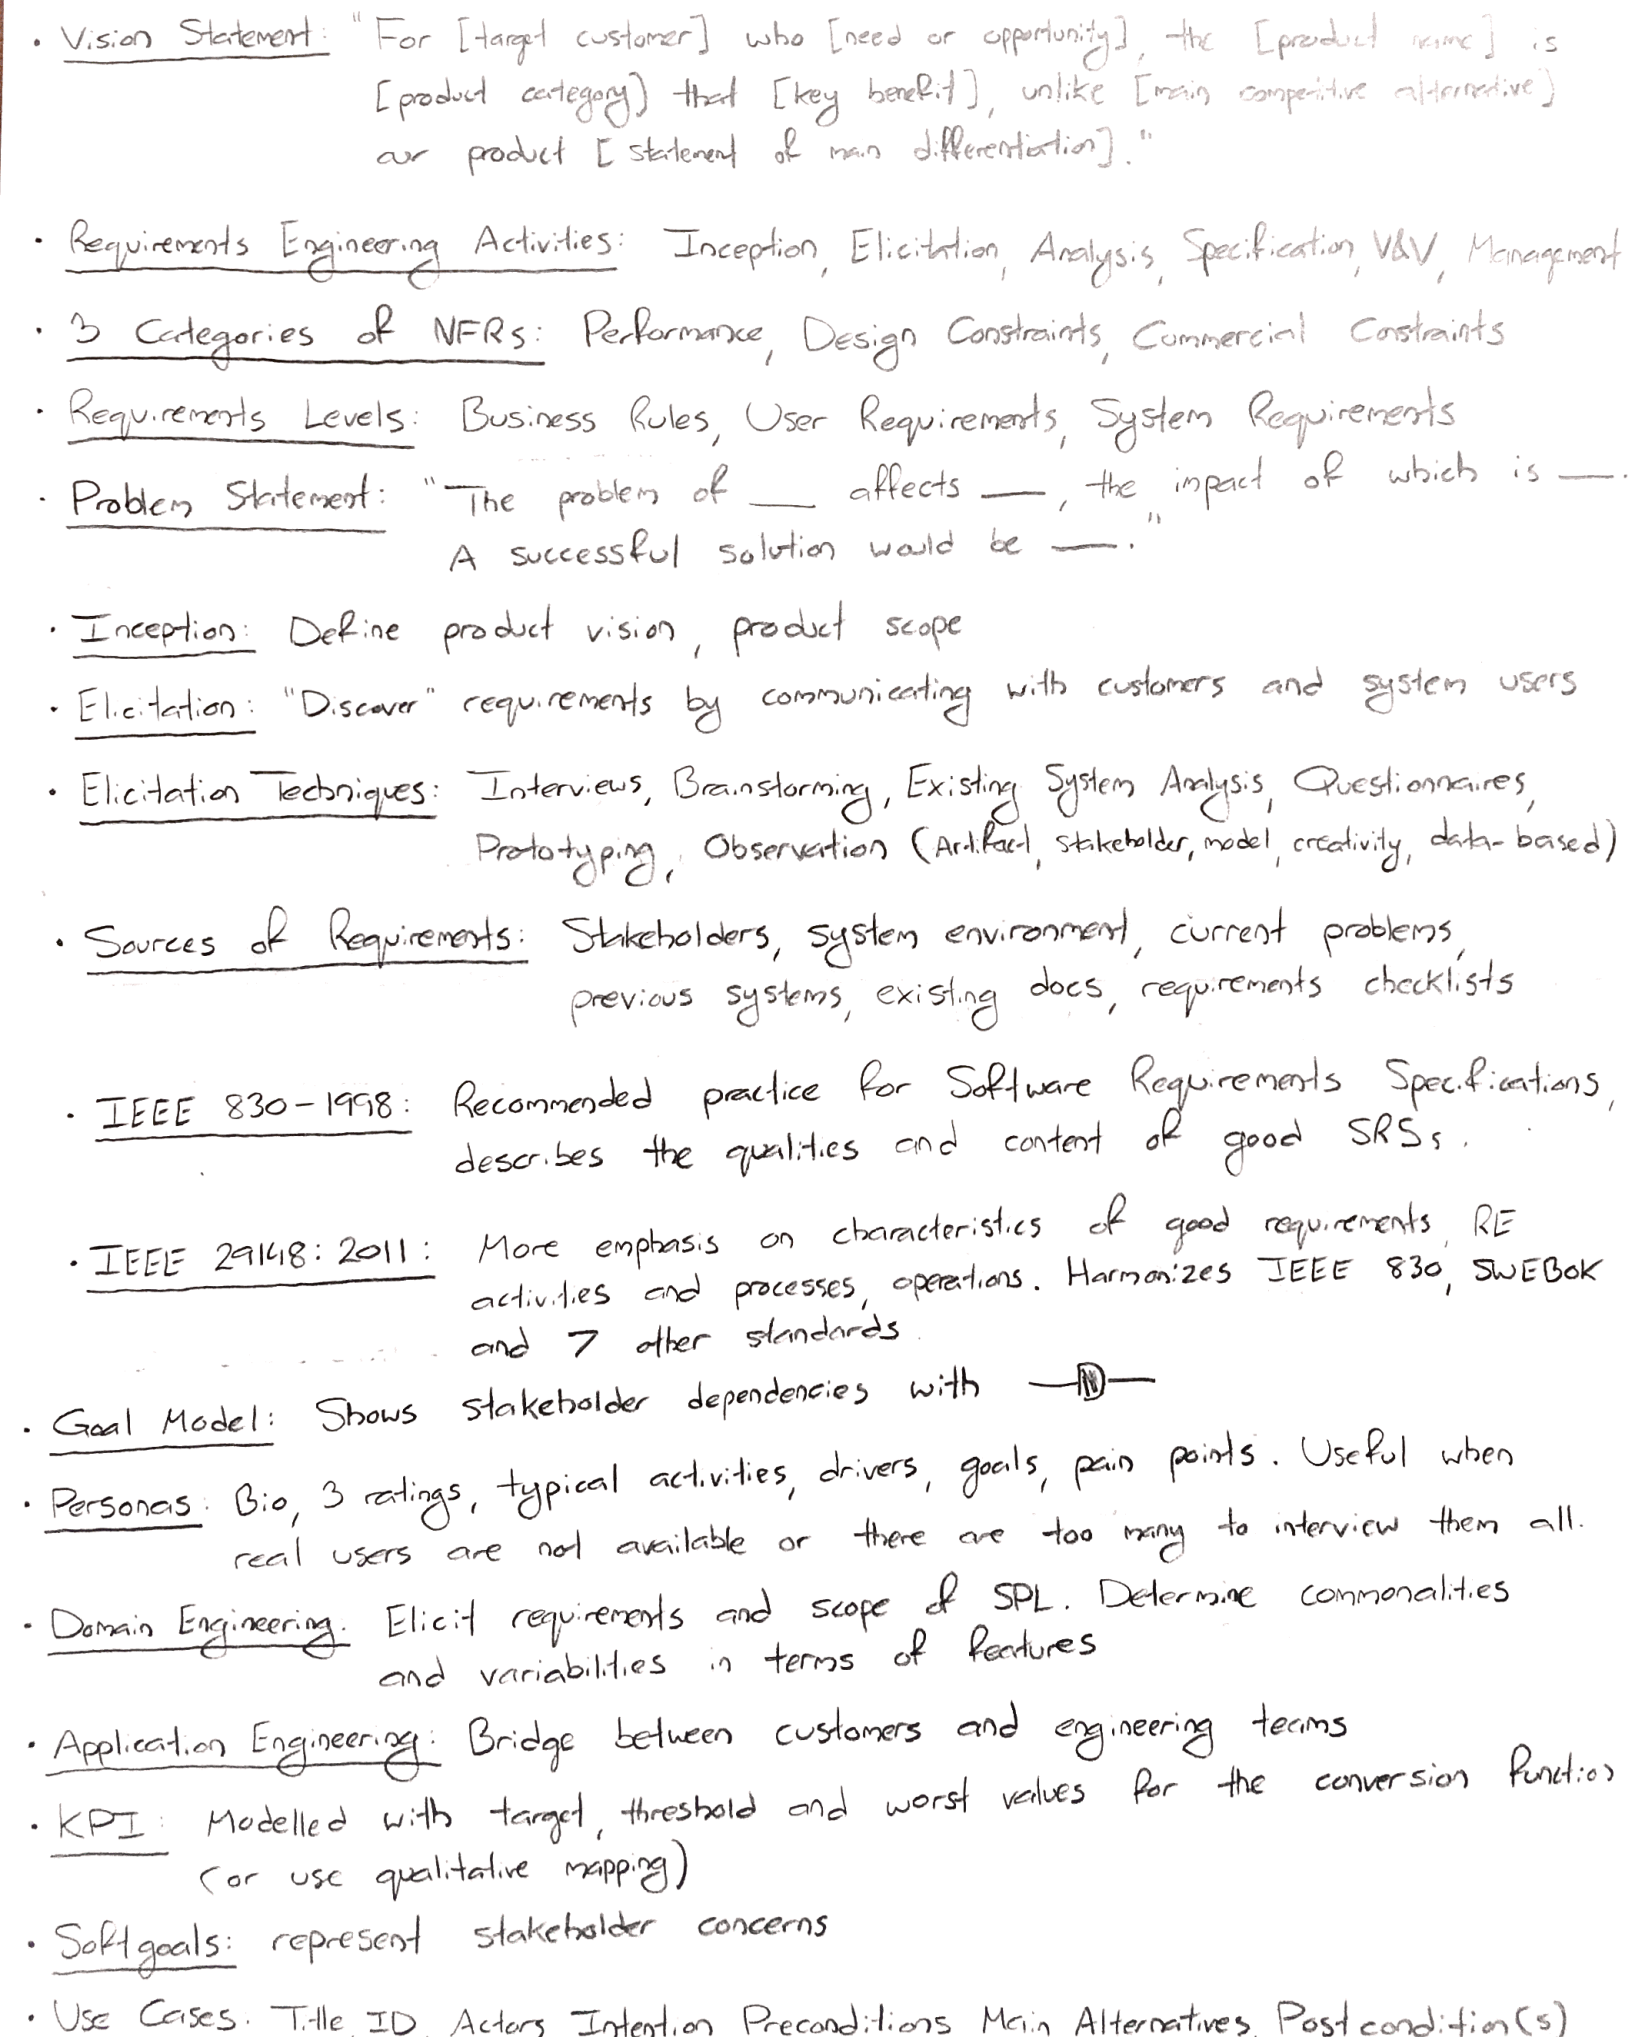 • Vision Statement: "For [target customer] who [need or opportunity], the [product name] is
[product category) that [key benefit], unlike [main competitive alternative)
our product [statement of main differentiation]."
• Requirements Engineering Activities: Inception, Elicitation, Analysis, Specification, V&V, Management
• 3 Categories of NFRs: Performance, Design Constraints, Commercial Constraints
• Requirements Levels: Business Rules, User Requirements, System Requirements
• Problem Statement: "The problem of ___ affects ___, the impact of which is ___.
A successful solution would be ___."
• Inception: Define product vision, product scope
• Elicitation: "Discover" requirements by communicating with customers and system users
• Elicitation Techniques: Interviews, Brainstorming, Existing System Analysis, Questionnaires,
Prototyping, Observation (Artifact, stakeholder, model, creativity, data-based)
• Sources of Requirements: Stakeholders, system environment, current problems,
previous systems, existing docs, requirements checklists
• IEEE 830-1998: Recommended practice for Software Requirements Specifications,
describes the qualities and content of good SRSs.
• IEEE 29148:2011: More emphasis on characteristics of good requirements, RE
activities and processes, operations. Harmonizes IEEE 830, SWEBOK
and 7 other standards.
• Goal Model: Shows stakeholder dependencies with —D—
• Personas: Bio, 3 ratings, typical activities, drivers, goals, pain points. Useful when
real users are not available or there are too many to interview them all.
• Domain Engineering: Elicit requirements and scope of SPL. Determine commonalities
and variabilities in terms of features
• Application Engineering: Bridge between customers and engineering teams
• KPI: Modelled with target, threshold and worst values for the conversion function
(or use qualitative mapping)
• Softgoals: represent stakeholder concerns
• Use Cases: Title, ID, Actors, Intention, Preconditions, Main, Alternatives, Postcondition(s)